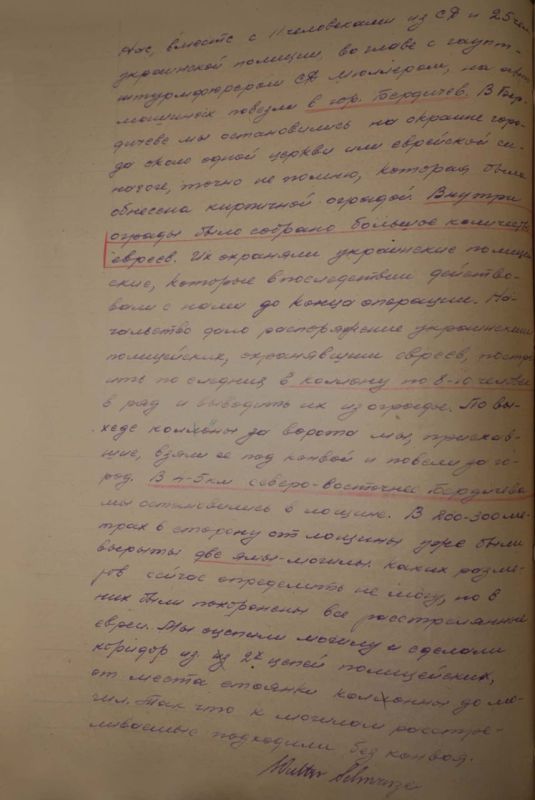 Нас, вместе с 11 человеками из СД и 25 чел
украинской полиции, во главе с гаупт-
штурмфюрером СД Мюллером, на авто
машинах повезли в гор. Бердичев. В Бер-
дичеве мы остановились на окраине горо-
да около одной церкви или еврейской си-
нагоге, точно не помню, которая была
обнесена кирпичной оградой. Внутри
ограды было собрано большое количество
евреев. Их охраняли украинские полицей
ские, которые впоследствии действо-
вали с нами до конца операции. На-
чальство дало распоряжение украинским
полицейских, охранявшим евреев, постро
ить по следния в колонну по 8-10 человек
в ряд и выводить их из ограды. По вы-
ходе колонны за ворота мы, приехав-
шие, взяли ее под конвой и повели за го-
род. В 4-5 км северо-восточнее Бердичева
мы остановились в лощине. В 200-300 ме-
трах в сторону от лощины уже были
вырыты две ямы-могилы. Каких разме-
ров сейчас определить не могу, но в
них были похоронены все расстрелянные
евреи. Мы оцепили могилу и сделали
коридор из 2х цепей полицейских,
от места стоянки колонны до мо-
гил. Так что к могилам расстре-
ливаемые подходили без конвоя.
Walter